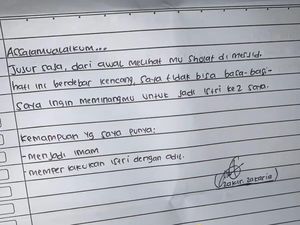 Assalamualaikum...
Jujur saja, dari awal melihat mu sholat di mesjid.
hati ini berdebar kencang, saya tidak bisa basa-basi-
saya ingin meminangmu untuk jadi istri ke 2 saya.
Kemampuan yg saya punya:
- menjadi imam
- memperlakukan istri dengan adil.
(zakir zakaria)